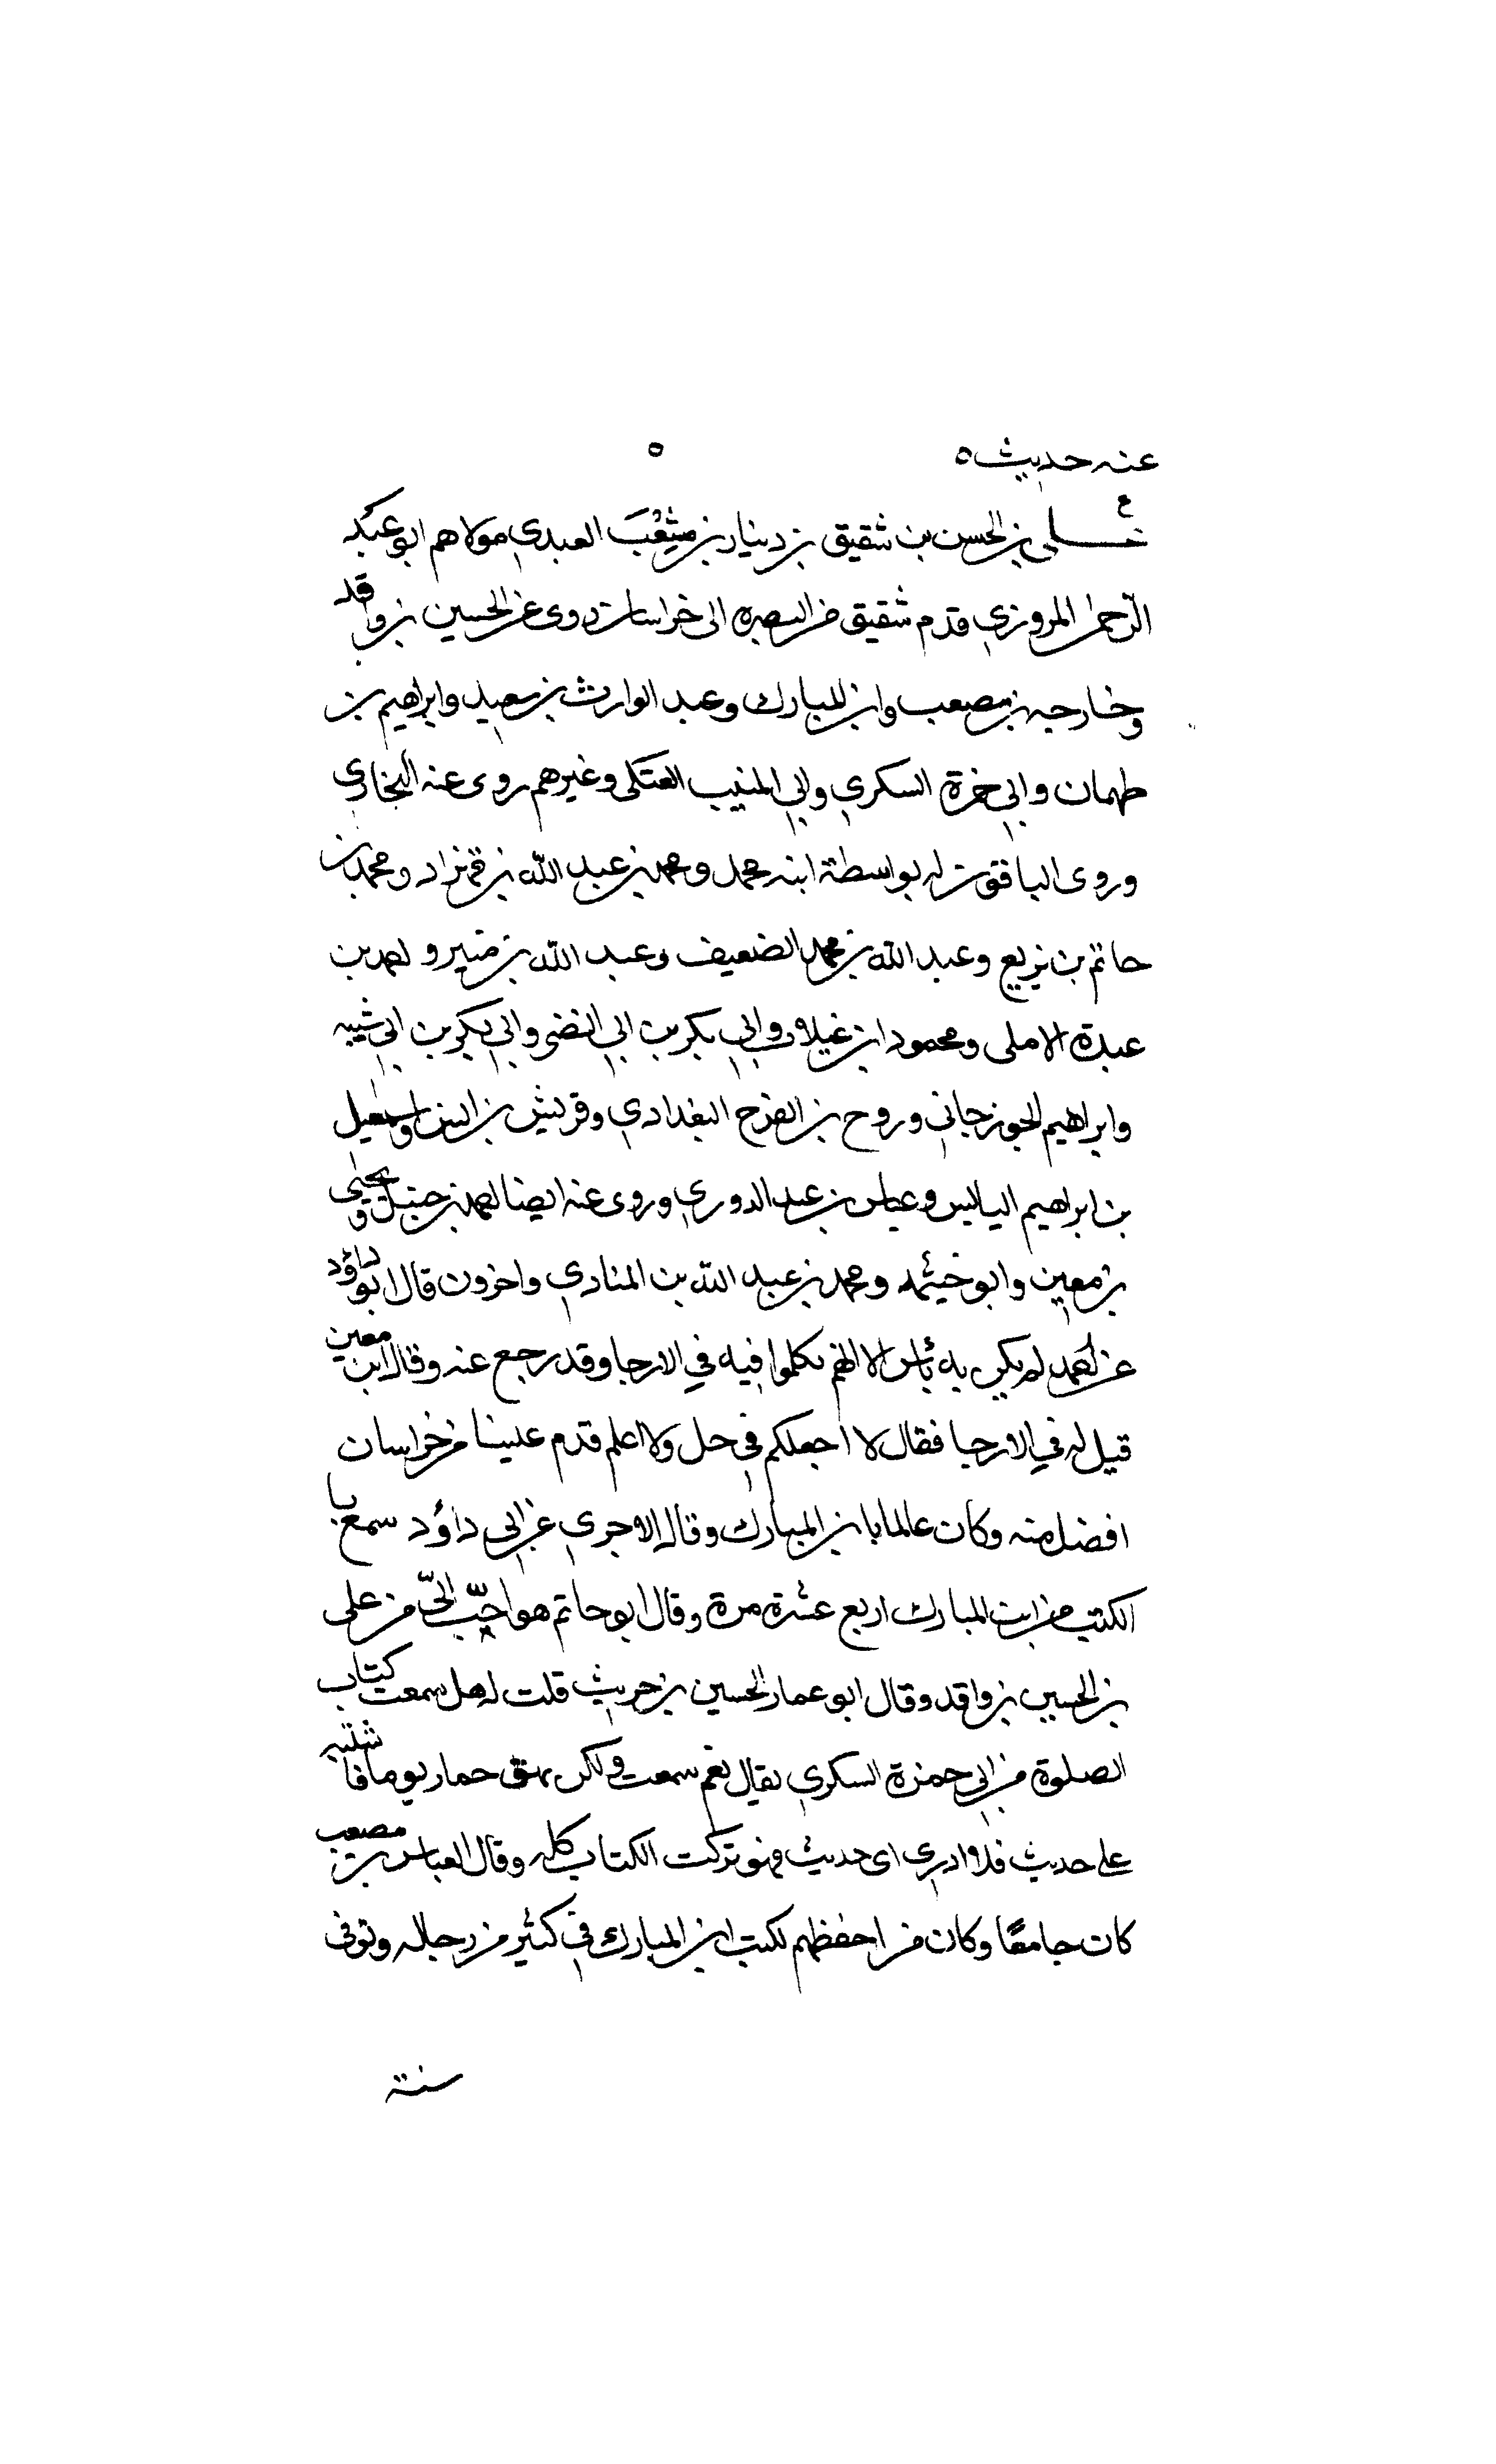 عنه حديث ه ه
ع
علي بن الحسن بن شقيق بن دينار بن مشعب العبدي مولاهم ابو عبد
الرحمن المروزي قدم شقيق من البصره الى خراسان روى عن الحسين بن واقد
وخارجه بن مصعب وابن المبارك وعبد الوارث بن سعيد وابراهيم بن
طهمان وابي حمزة السكري وابي المنيب العتكي وغيرهم روى عنه البخاري
وروى الباقون له بواسطة ابنه محمد ومحمد بن عبد الله بن قهزاد ومحمد بن
حاتم بن بزيع وعبد الله بن محمد الضعيف وعبد الله بن منير واحمد بن
عبدة الاملي ومحمود ابن غيلان وابي بكر بن ابي النضر وابي بكر بن ابي شيبه
وابراهيم الجوزجاني وروح بن الفرج البغدادي وقريش بن واسمعيل
بن ابراهيم البالسي وعباس بن عبد الدوري وروى عنه ايضا احمد بن حنبل ويحيى
بن معين وابو خيثمه ومحمد بن عبيد الله بن المنادي واخرون قال ابو داؤد
عن احمد لم يكن به بأس الا انهم تكلموا فيه في الارجا وقد رجع عنه وقال ابن معين
قيل له في الارجا فقال لا اجعلكم في حل ولا اعلم قدم علينا من خراسان
افضل منه وكان عالما بابن المبارك وقال الاجري عن ابي داؤد سمع با
الكتب من ابن المبارك اربع عشرة مرة وقال ابو حاتم هو احبّ اليّ من علي
بن الحسين بن واقد وقال ابو عمار الحسين بن حريث قلت له هل سمعت كتاب
الصلوة من ابي حمزة السكري فقال نعم سمعت ولكن نهق حمار يوما فاشتبه
علي حديث فلا ادري اى حديث هو تركت الكتاب كله وقال العباس بن مصعب
كان جامعًا وكان من احفظهم لكتب ابن المبارك في كثير من رجاله وتوفى
سنة